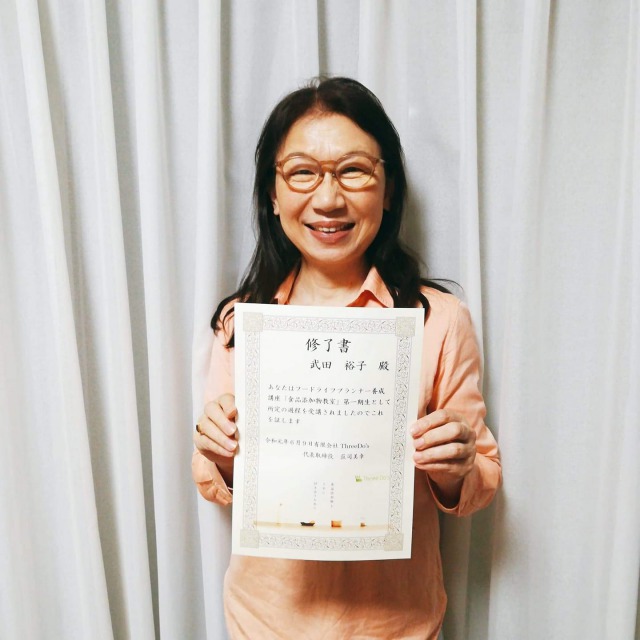 修了書
武田 裕子 殿
あなたはフードライフプランナー養成
講座「食品添加物教室」第一期生として
所定の過程を受講されましたのでこれ
を証します
令和元年6月9日有限会社 ThreeDo's
代表取締役 庄司美幸